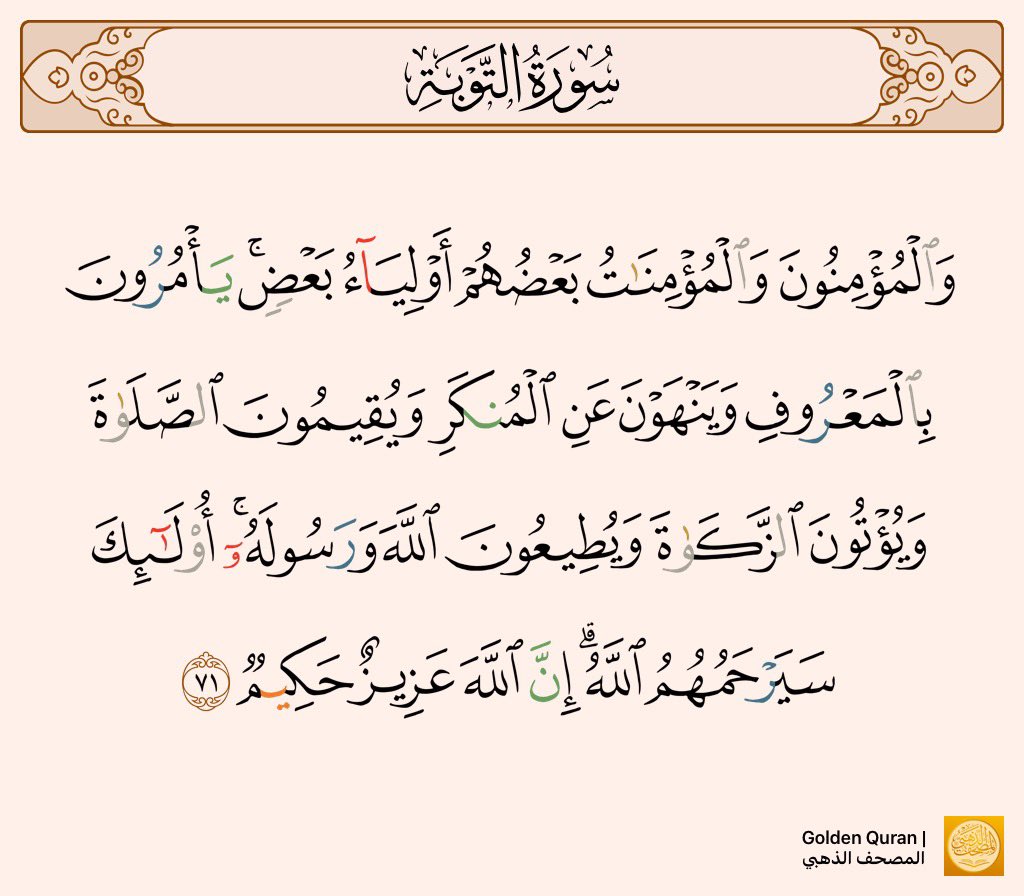 سُورَةُ التَّوْبَةِ
وَٱلْمُؤْمِنُونَ وَٱلْمُؤْمِنَـٰتُ بَعْضُهُمْ أَوْلِيَآءُ بَعْضٍۚ يَأْمُرُونَ
بِٱلْمَعْرُوفِ وَيَنْهَوْنَ عَنِ ٱلْمُنكَرِ وَيُقِيمُونَ ٱلصَّلَوٰةَ
وَيُؤْتُونَ ٱلزَّكَوٰةَ وَيُطِيعُونَ ٱللَّهَ وَرَسُولَهُۥٓۚ أُو۟لَـٰٓئِكَ
سَيَرْحَمُهُمُ ٱللَّهُۗ إِنَّ ٱللَّهَ عَزِيزٌ حَكِيمٌ ٧١
Golden Quran |
المصحف الذهبي
المصحف الذهبي